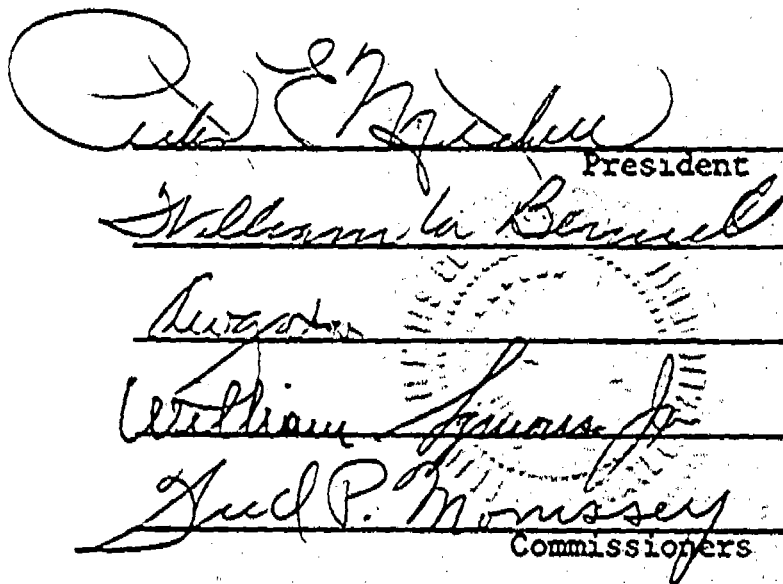 Peter E Mitchell
President
William M Bennett
William Symons Jr
Fred P. Morrissey
Commissioners